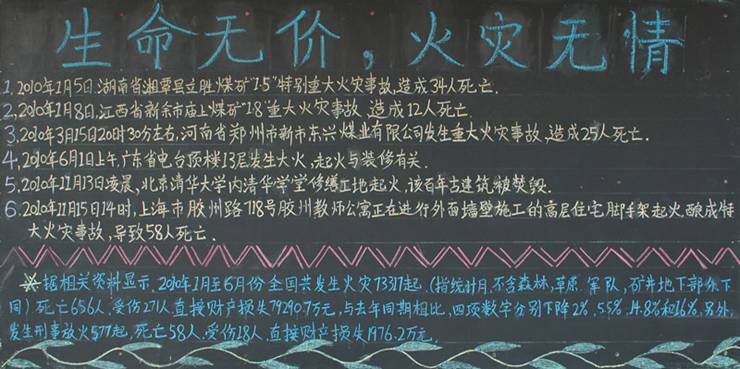 生命无价，火灾无情
1,2010年1月5日.湖南省湘潭县立胜煤矿"1·5"特别重大火灾事故,造成34人死亡.
2,2010年1月8日.江西省新余市庙上煤矿"1·8"重大火灾事故,造成12人死亡.
3,2010年3月15日20时30分左右,河南省郑州市新市东兴煤业有限公司发生重大火灾事故,造成25人死亡.
4,2010年6月1日上午,广东省电台顶楼13层发生大火,起火与装修有关.
5,2010年11月13日凌晨,北京清华大学内清华学堂修缮工地起火,该百年古建筑被焚毁.
6,2010年11月15日14时,上海市胶州路718号胶州教师公寓正在进行外面墙壁施工的高层住宅脚手架起火,酿成特
大火灾事故,导致58人死亡.
※据相关资料显示,2010年1月至6月份全国共发生火灾73317起,(指统计月,不含森林,草原.军队,矿井地下部分下
同)死亡656人,受伤271人,直接财产损失79290.7万元,与去年同期相比,四项数字分别下降2%,5.5%,14.8%和16%.另外,
发生刑事放火577起,死亡58人.受伤28人.直接财产损失1976.2万元.